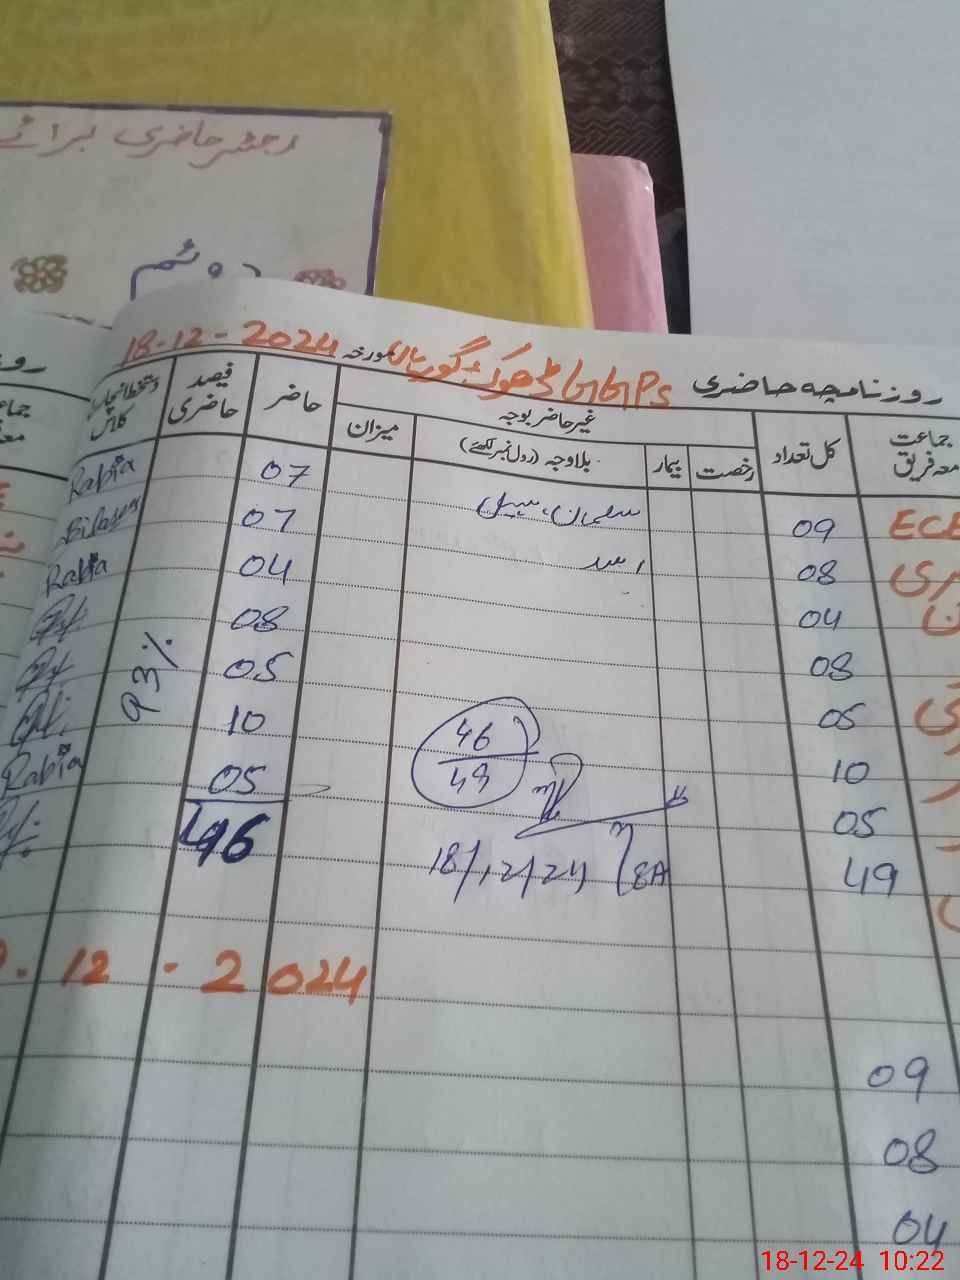 رجسٹر حاضری برائے
دوئم
روزنامچہ حاضری GGPS ڈھوک گورہاں مورخہ 18-12-2024
جماعت معہ فریق
کل تعداد
غیر حاضر بوجہ
رخصت
بیمار
بلاوجہ (رول نمبر لکھئے)
میزان
حاضر
فیصد حاضری
دستخط انچارج کلاس
ECE 09 سلمان، سہیل 07 Rabia
08 اسد 07
04 04 Rabia
08 08
05 05
10 10
05 05 Rabia
49 46
93%
46
49
18/12/24
12-2024
09
08
04
18-12-24 10:22